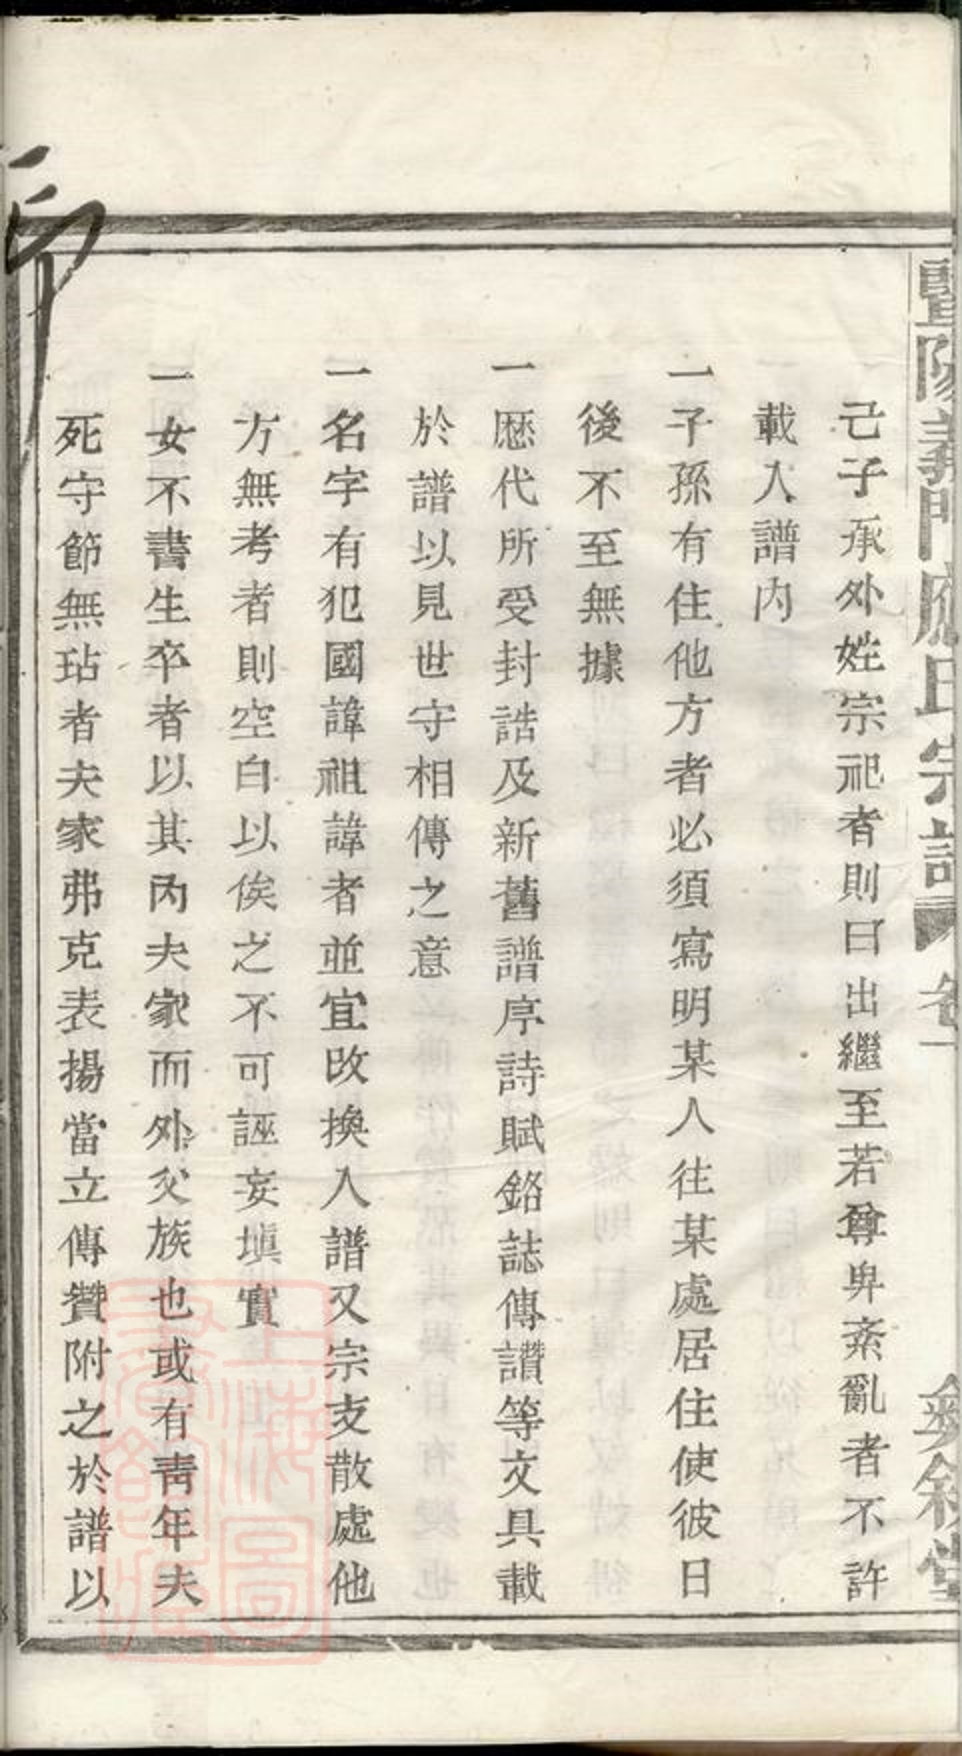 暨陽義門應氏宗譜 卷一 敘堂
己子承外姓宗祀者則曰出繼至若尊卑紊亂者不許
載入譜內
一子孫有住他方者必須寫明某人往某處居住使彼日
後不至無據
一歷代所受封誥及新舊譜序詩賦銘誌傳讚等文具載
於譜以見世守相傳之意
一名字有犯國諱祖諱者並宜改換入譜又宗支散處他
方無考者則空白以俟之不可誣妄填實
一女不書生卒者以其內夫家而外父族也或有靑年夫
死守節無玷者夫家弗克表揚當立傳贊附之於譜以
上海圖書館藏